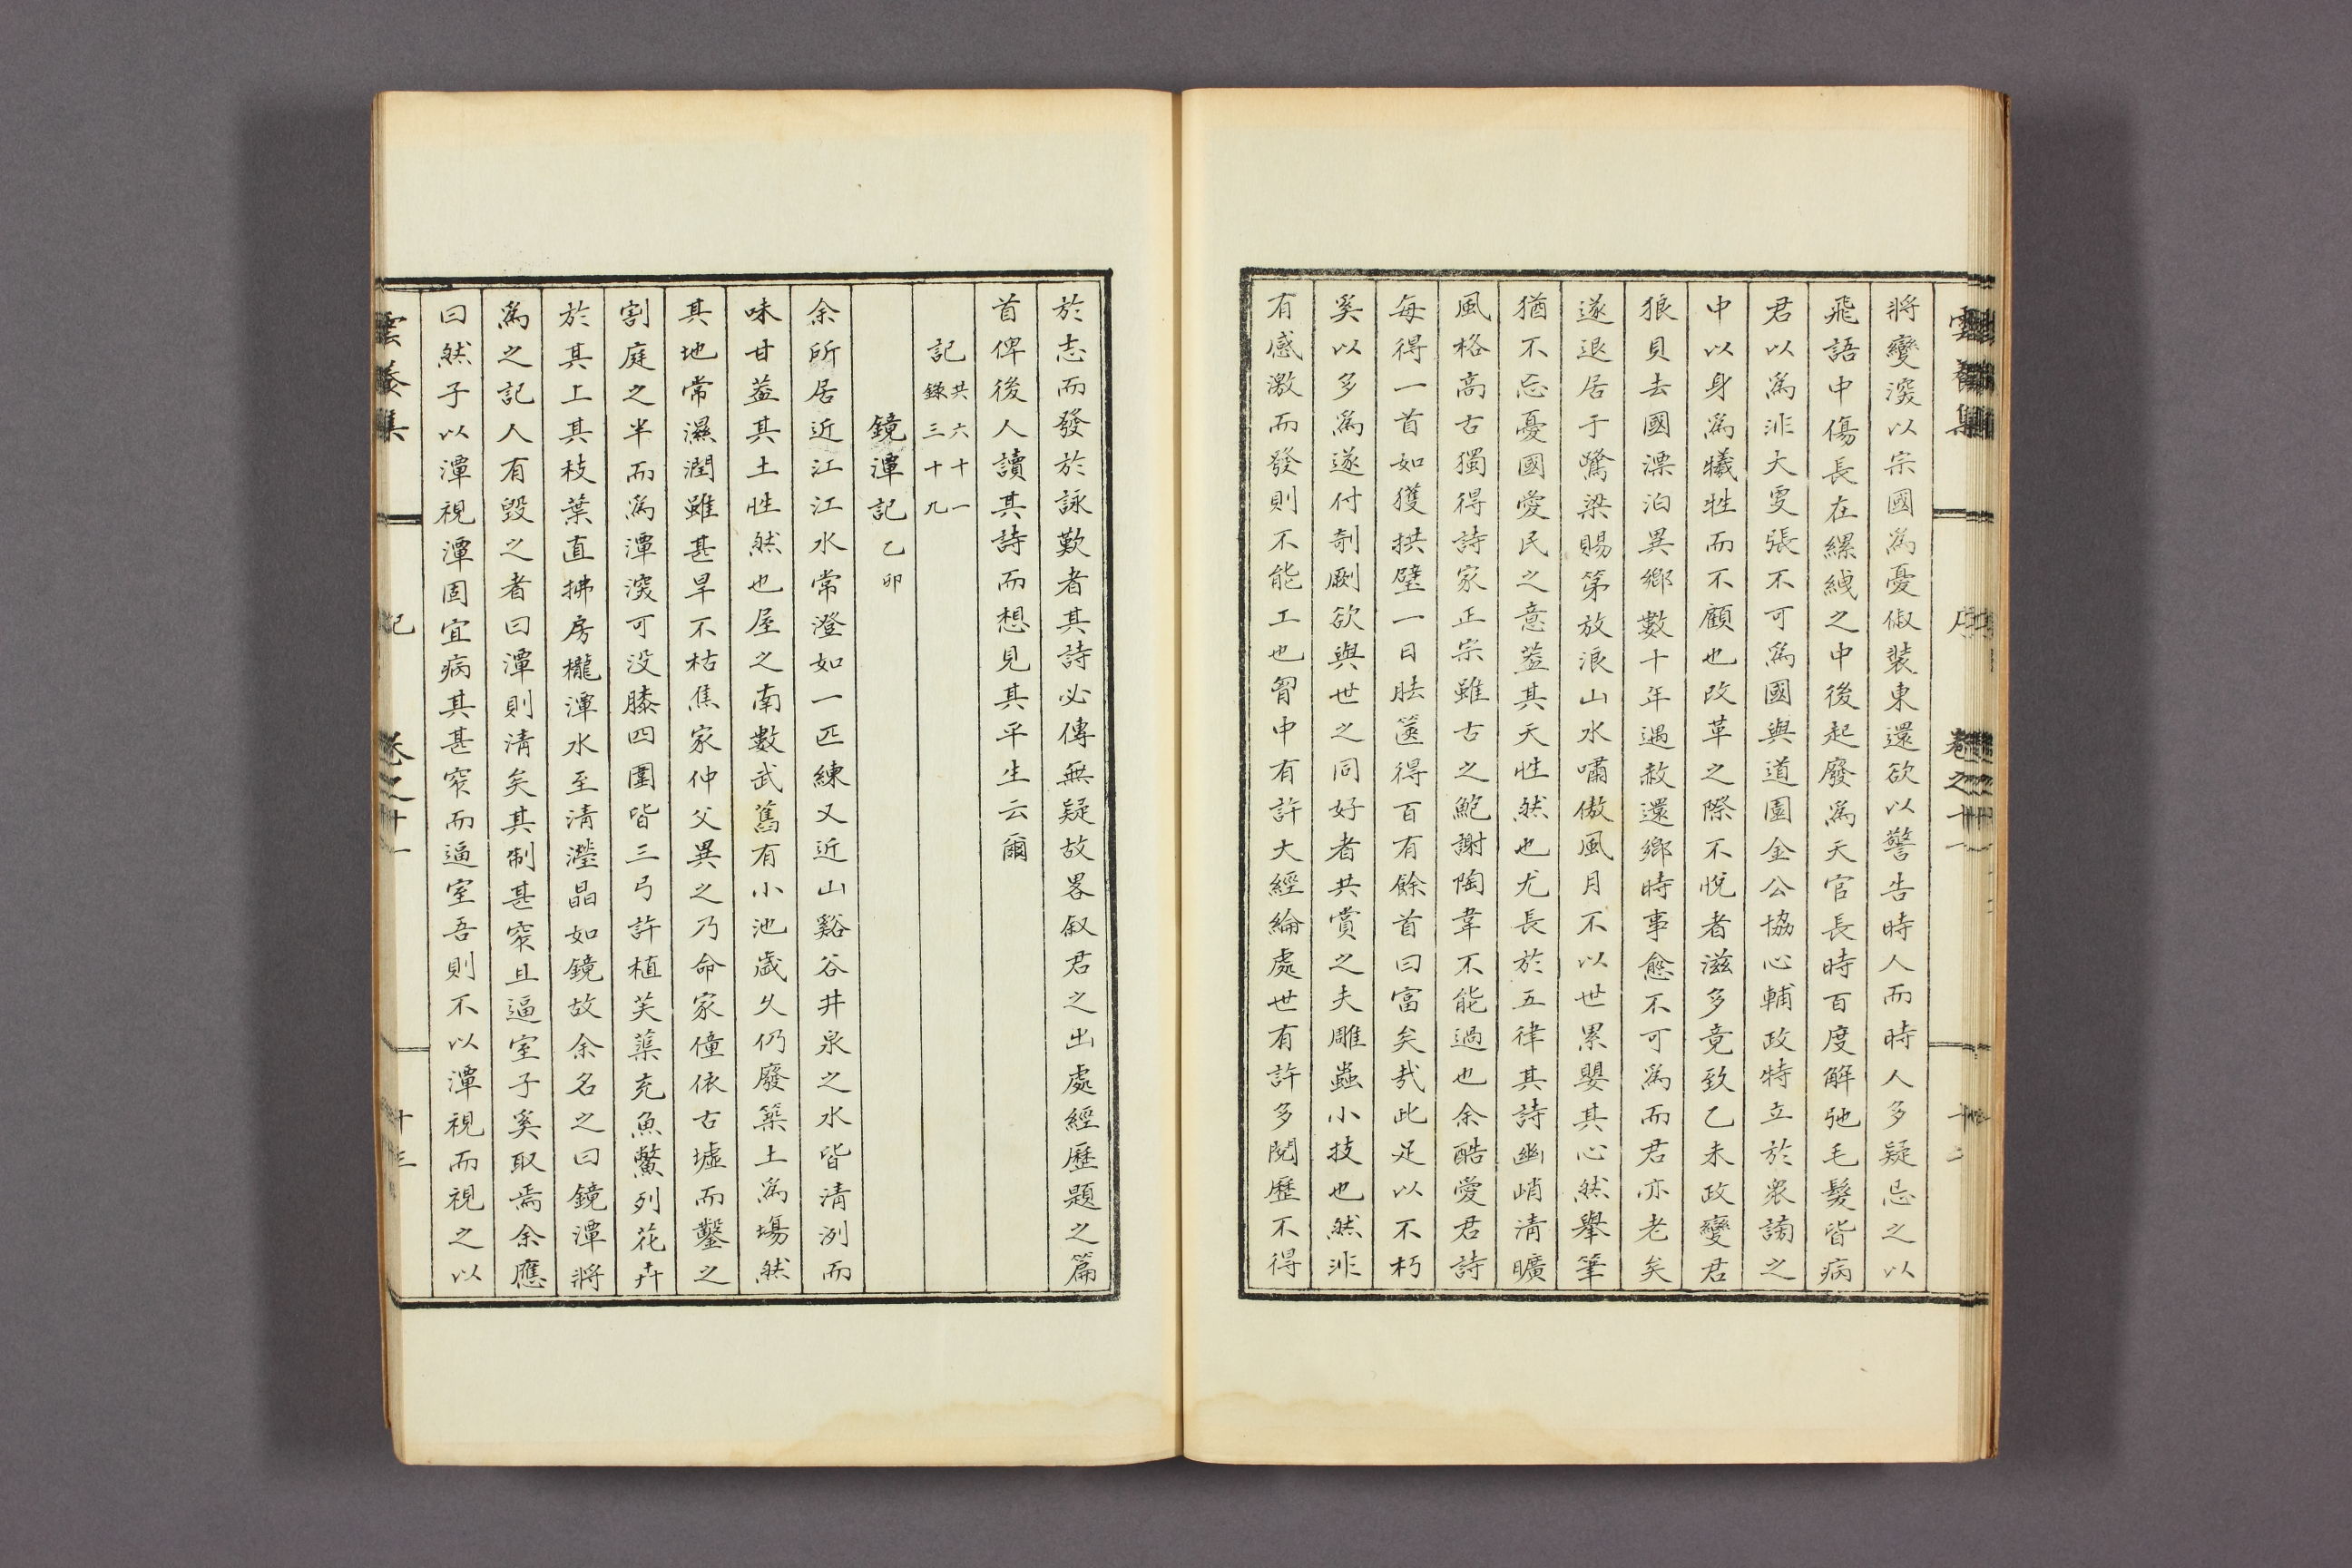 雲養集 序 卷之十一 十二
將變深以宗國爲憂俶裝東還欲以警告時人而時人多疑忌之以
飛語中傷長在縲絏之中後起廢爲天官長時百度解弛毛髮皆病
君以爲非大更張不可爲國與道園金公協心輔政特立於衆謗之
中以身爲犧牲而不顧也改革之際不悅者滋多竟致乙未政變君
狼貝去國漂泊異鄉數十年遇赦還鄉時事愈不可爲而君亦老矣
遂退居于鷺梁賜第放浪山水嘯傲風月不以世累嬰其心然舉筆
猶不忘憂國愛民之意葢其天性然也尤長於五律其詩幽峭淸曠
風格高古獨得詩家正宗雖古之鮑謝陶韋不能過也余酷愛君詩
每得一首如獲拱璧一日胠篋得百有餘首曰富矣哉此足以不朽
奚以多爲遂付剞劂欲與世之同好者共賞之夫雕蟲小技也然非
有感激而發則不能工也胷中有許大經綸處世有許多閱歷不得
於志而發於詠歎者其詩必傳無疑故畧叙君之出處經歷題之篇
首俾後人讀其詩而想見其平生云爾
記 共六十一 錄三十九
鏡潭記 乙卯
余所居近江江水常澄如一匹練又近山谿谷井泉之水皆淸洌而
味甘葢其土性然也屋之南數武舊有小池歲久仍廢築土爲場然
其地常濕潤雖甚旱不枯焦家仲父異之乃命家僮依古墟而鑿之
割庭之半而爲潭深可沒膝四圍皆三弓許植芙蕖充魚鱉列花卉
於其上其枝葉直拂房櫳潭水至淸瀅晶如鏡故余名之曰鏡潭將
爲之記人有毀之者曰潭則淸矣其制甚窄且逼室子奚取焉余應
曰然子以潭視潭固宜病其甚窄而逼室吾則不以潭視而視之以
雲養集 記 卷之十一 十三